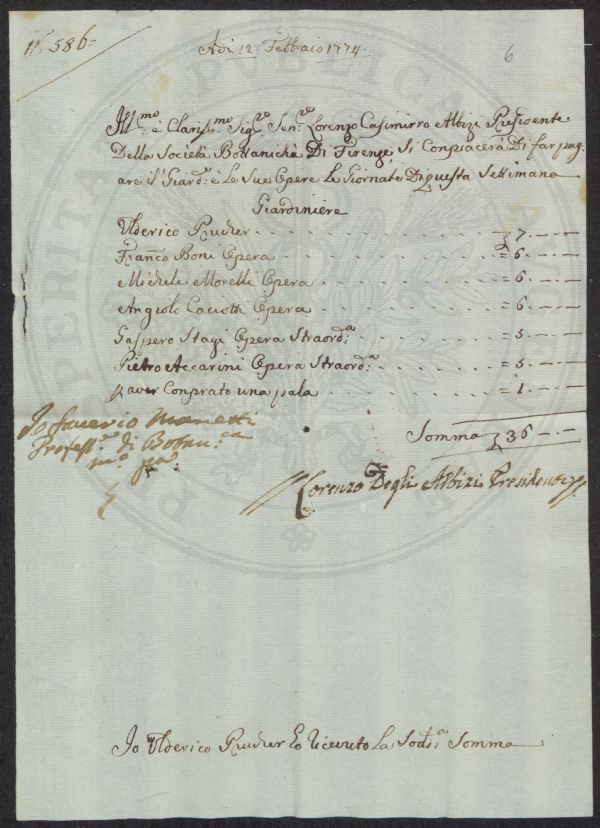 N.° 586=
Adi 12 Febbraio 1774.
6
Ill.mo e Clariss.mo Sig.re Sen.re Lorenzo Casimirro Albizi Presidente
Della Società Bottanicha Di Firenze Si Conpiacerà Di far pag
are il Giard.e e Le Sue Opere Le Giornate Di questa Settimana
Giardiniere
Ulderico Prucker 7. — —
Franc.o Boni Opera = 6. — —
Michele Morelli Opera = 6 — —
Angiolo Caciotti Opera = 6. — —
Gaspero Stagi Opera Straord.a = 5. — —
Pietro Accarini Opera Straord.a = 5. — —
P aver Conprato una pala = 1. — —
Somma 36 — —
Io Saverio Manetti
Profess.e di Botan.ca
m.o p.a
Lorenzo Degli Albizi Presidente
Io Ulderico Prucker ho ricevuto La Sodd.a Somma